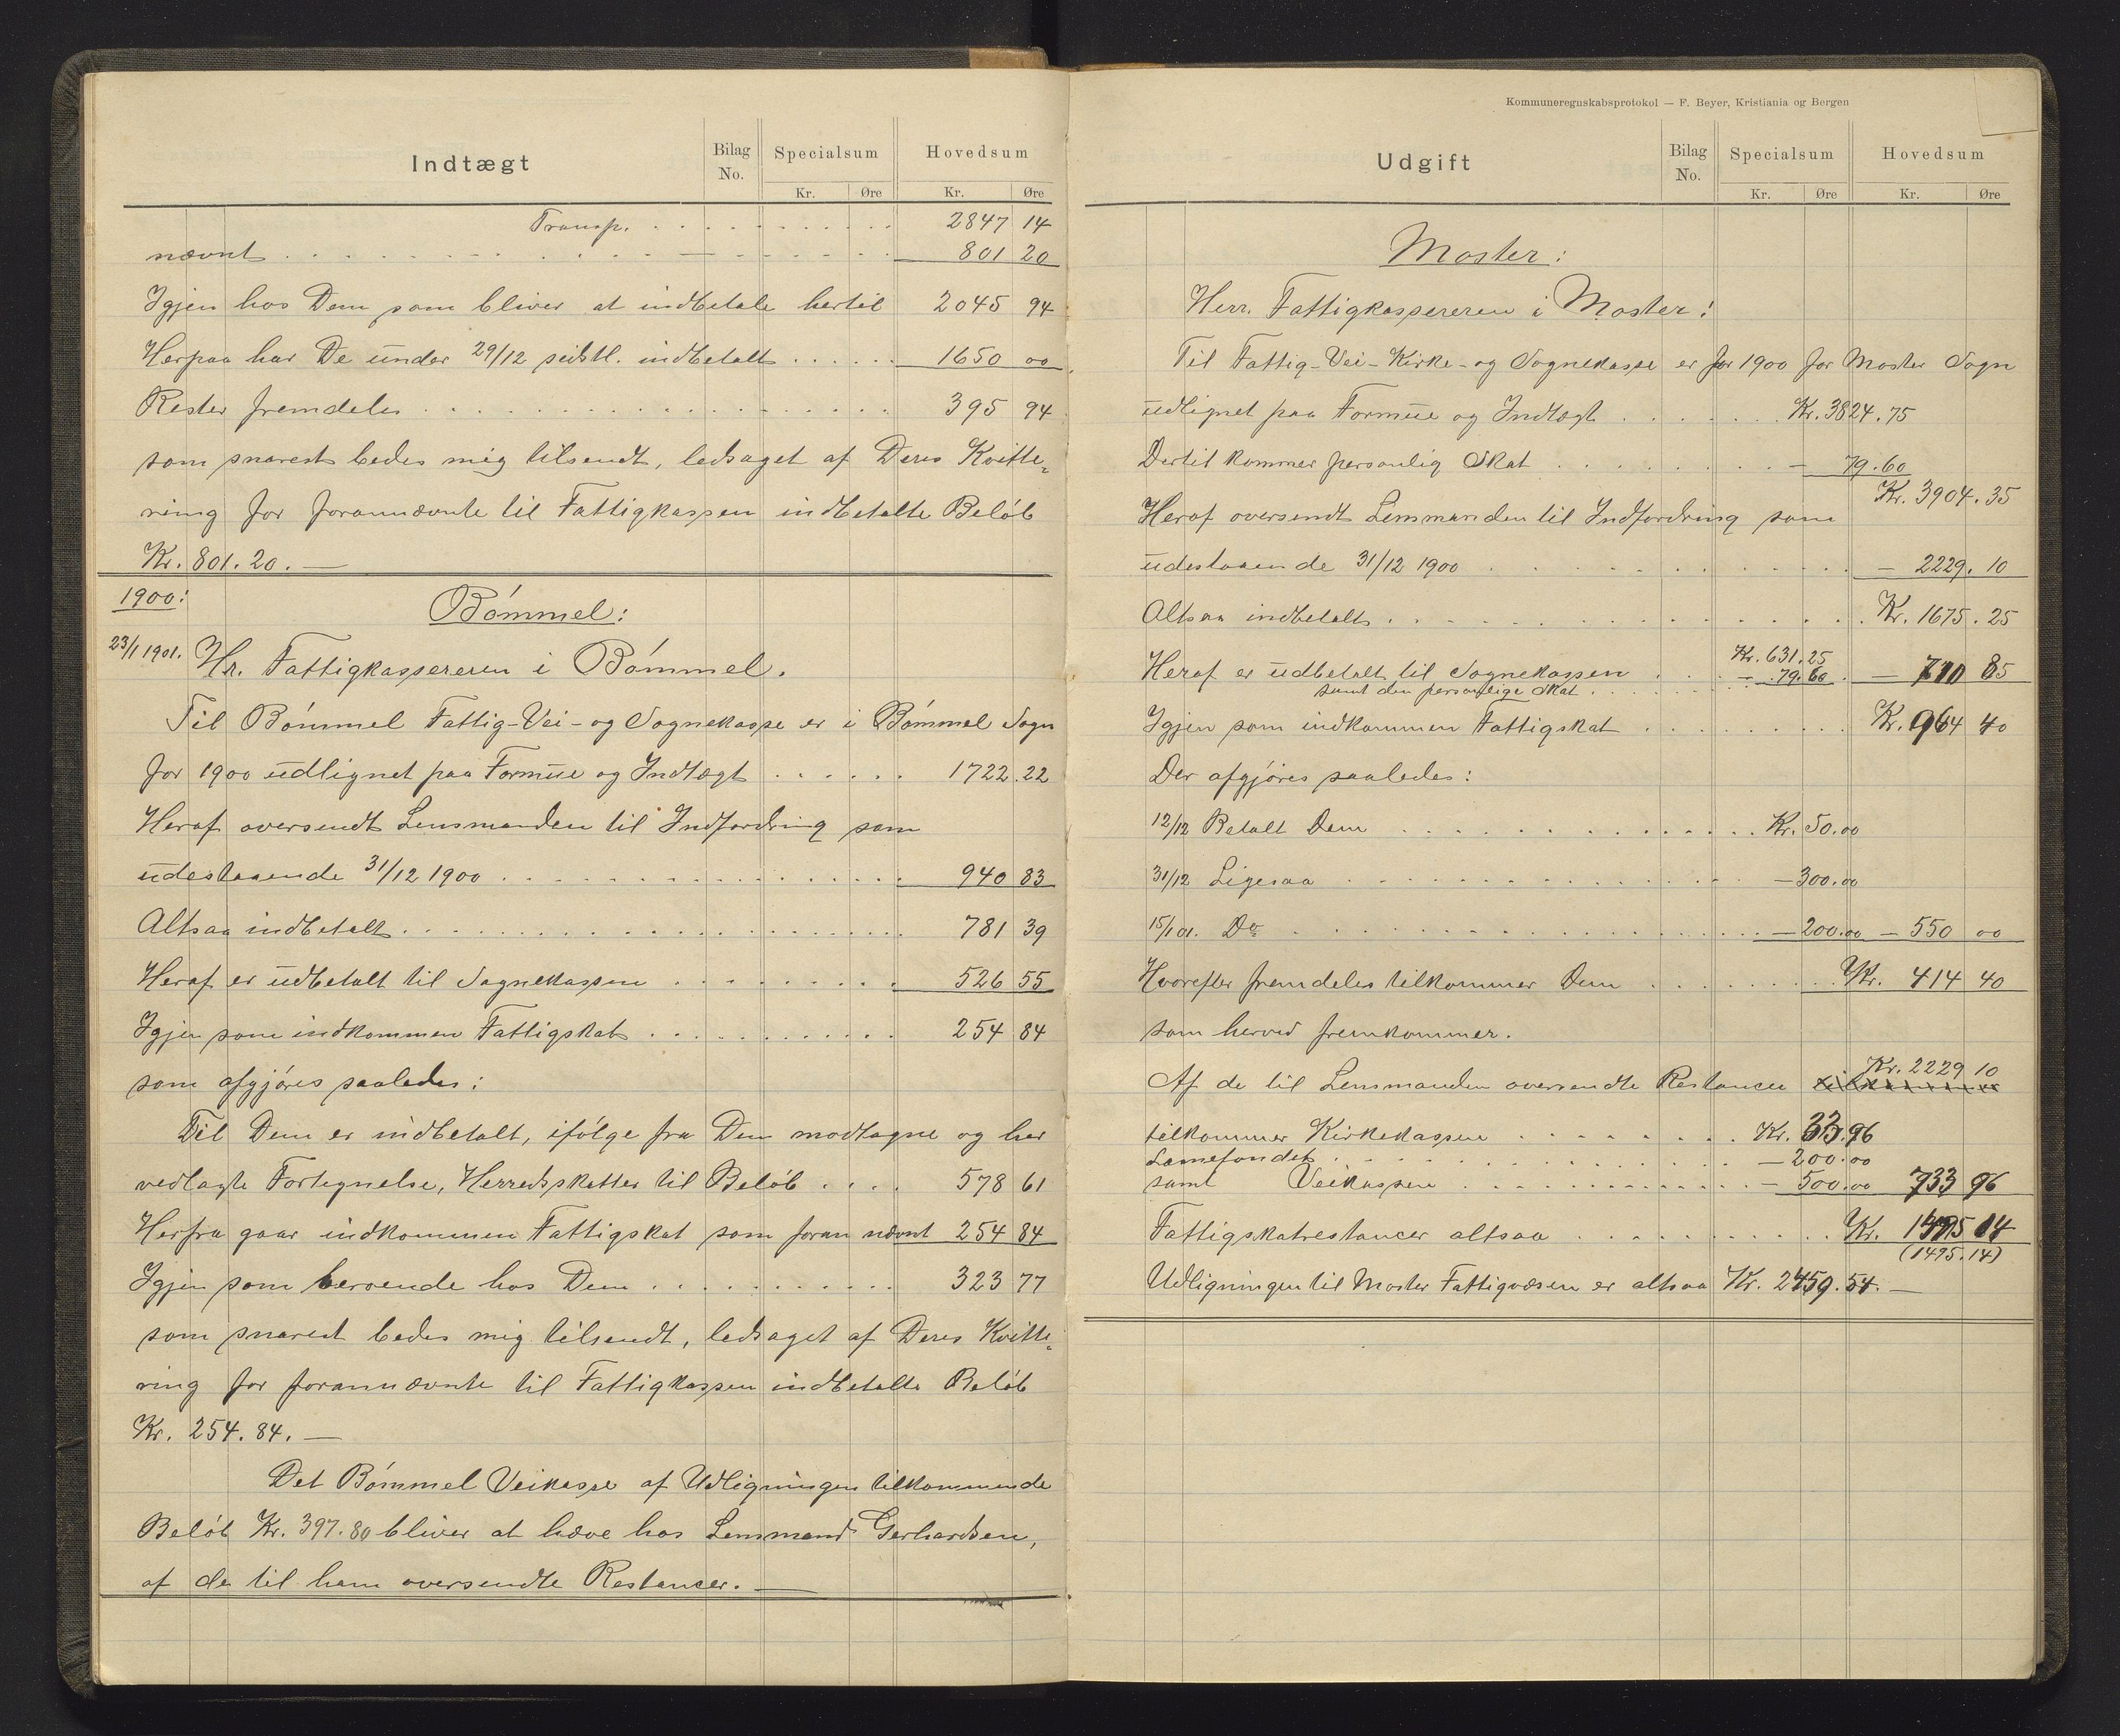 Indtægt
Bilag No.
Specialsum
Hovedsum
Kr. Øre Kr. Øre
Transp. 2847 14
nævnt 801 20
Igjen hos Dem som bliver at indbetale hertil 2045 94
Herpaa har De under 29/12 sidstl. indbetalt 1650 00
Rester fremdeles 395 94
som snarest bedes mig tilsendt, ledsaget af Deres Kvitte-
ring for forannævnte til Fattigkassen indbetalte Beløb
Kr. 801.20. —
1900: Bömmel:
23/1 1901. Hr. Fattigkassereren i Bömmel.
Til Bömmel Fattig-Vei- og Sognekasse er i Bömmel Sogn
for 1900 udlignet paa Formue og Indtægt 1722.22
Heraf oversendt Lensmanden til Indfordring som
udestaaende 31/12 1900 940 83
Altsaa indbetalt 781 39
Heraf er udbetalt til Sognekassen 526 55
Igjen som indkommen Fattigskat 254 84
som afgjøres saaledes:
Til Dem er indbetalt, ifølge fra Dem modtagne og her
vedlagte Fortegnelse, Herredsskatter til Beløb 578 61
Herfra gaar indkommen Fattigskat som foran nævnt 254 84
Igjen som beroende hos Dem 323 77
som snarest bedes mig tilsendt, ledsaget af Deres Kvitte-
ring for forannævnte til Fattigkassen indbetalte Beløb
Kr. 254.84. —
Det Bömmel Veikasse af Udligningen tilkommende
Beløb Kr. 397.80 bliver at hæve hos Lensmand Gerhardsen,
af de til ham oversendte Restancer. —
Kommuneregnskabsprotokol — F. Beyer, Kristiania og Bergen
Udgift
Bilag No.
Specialsum
Hovedsum
Kr. Øre Kr. Øre
Moster:
Herr. Fattigkassereren i Moster!
Til Fattig-Vei-Kirke- og Sognekasse er for 1900 for Moster Sogn
udlignet paa Formue og Indtægt Kr. 3824.75
Dertil kommer personlig Skat — 79.60
Kr. 3904.35
Heraf oversendt Lensmanden til Indfordring som
udestaaende 31/12 1900 — 2229.10
Altsaa indbetalt Kr. 1675.25
Heraf er udbetalt til Sognekassen Kr. 631.25
samt den personlige Skat — 79.60 — 710 85
Igjen som indkommen Fattigskat Kr. 964 40
Der afgjøres saaledes:
12/12 Betalt Dem Kr. 50.00
31/12 Ligesaa — 300.00
15/1 01. Do — 200.00 — 550 00
Hvorefter fremdeles tilkommer Dem Kr. 414 40
som herved fremkommer.
Af de til Lensmanden oversendte Restancer Kr. 2229 10
tilkommer Kirkekassen Kr. 33.96
Lanefondet — 200.00
samt Veikassen — 500.00 733 96
Fattigskatrestancer altsaa Kr. 1495 14
(1495.14)
Udligningen til Moster Fattigvæsen er altsaa Kr. 2459.54. —